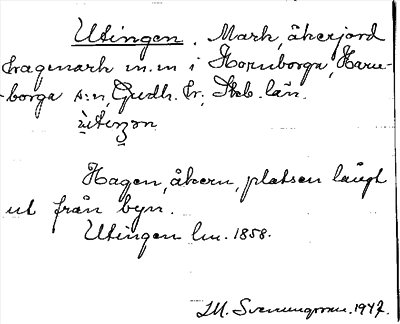 Utingen. Mark, åkerjord
hagmark m.m i Hornborga, Horn-
-borga s:n, Gudh. hr, Skb. län.
Hagen, åkern, platsen långt
ut från byn.
Utingen lm. 1858.
M. Svenungsson. 1947.